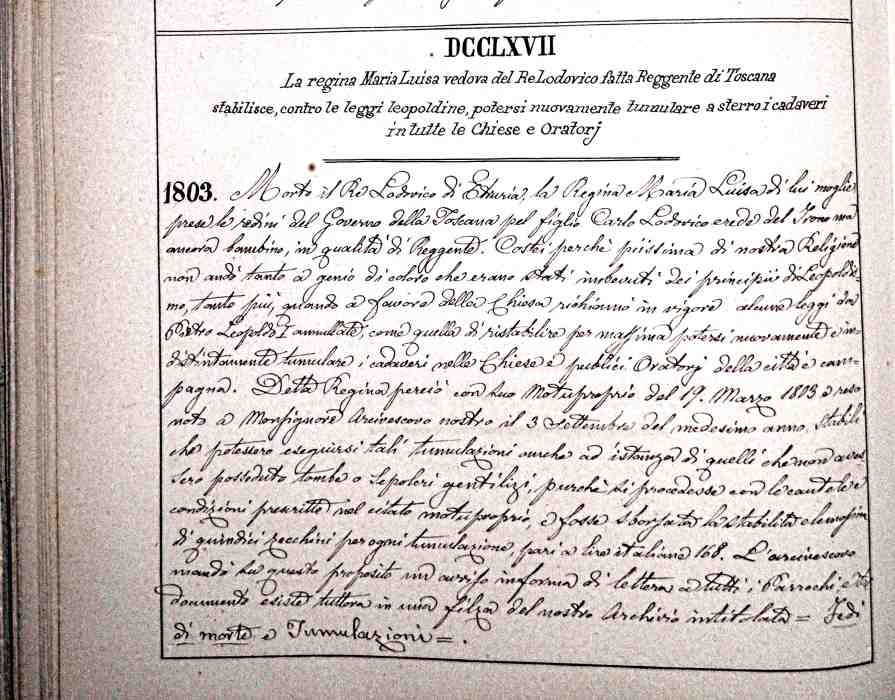 . DCCLXVII
La regina Maria Luisa vedova del Re Lodovico fatta Reggente di Toscana
stabilisce, contro le leggi leopoldine, potersi nuovamente tumulare a sterro i cadaveri
in tutte le Chiese e Oratorj
1803. Morto il Re Lodovico di Etruria, la Regina Maria Luisa di lui moglie
prese le redini del Governo della Toscana pel figlio Carlo Lodovico erede del Trono ma
ancora bambino, in qualità di Reggente. Costei perchè piissima di nostra Religione
non andò tanto a genio di coloro che erano stati imbevuti dei principii di Leopoldis-
mo, tanto più, quando a favore della Chiesa richiamò in vigore alcune leggi da
Pietro Leopoldo I annullate, come quella di ristabilire per massima potersi nuovamente e in-
distintamente tumulare i cadaveri nelle Chiese e publici Oratorj della città e cam-
pagna. Detta Regina perciò con suo Motuproprio del 19. Marzo 1803 e reso
noto a Monsignore Arcivescovo nostro il 3 Settembre del medesimo anno, stabilì
che potessero eseguirsi tali tumulazioni anche ad istanza di quelli che non aves
sero posseduto tombe o sepolcri gentilizi, purchè si procedesse con le cautele e
condizioni prescritte nel citato motuproprio, e fosse sborsata la stabilita elemosina
di quindici zecchini per ogni tumulazione, pari a lire italiane 168. L'arcivescovo
mandò su questo proposito un avviso in forma di lettera a tutti i Parrochi, e tal
documento esiste tuttora in una filza del nostro Archivio intitolata = Fedi
di morte e Tumulazioni = .